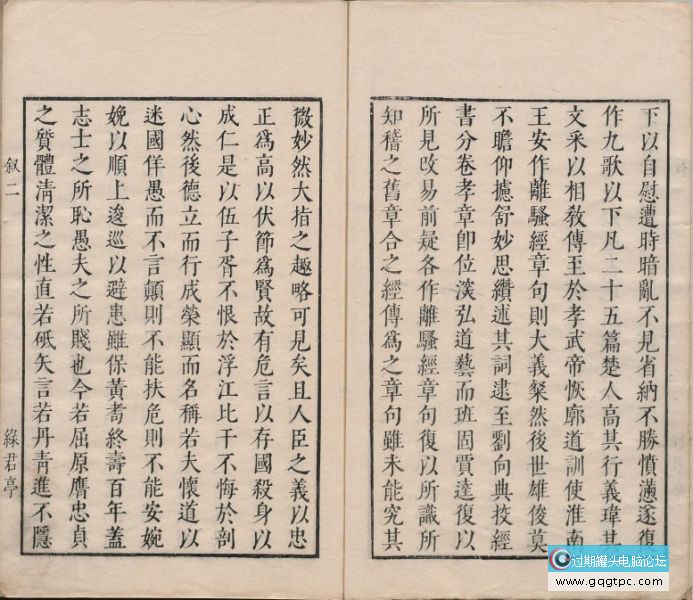 下以自慰遭時暗亂不見省納不勝憤懣遂復
作九歌以下凡二十五篇楚人高其行義瑋其
文采以相教傳至於孝武帝恢廓道訓使淮南
王安作離騷經章句則大義粲然後世雄俊莫
不瞻仰攄舒妙思纘述其詞逮至劉向典挍經
書分卷孝章卽位深弘道藝而班固賈逵復以
所見改易前疑各作離騷經章句復以所識所
知稽之舊章合之經傳為之章句雖未能究其
微妙然大指之趣略可見矣且人臣之義以忠
正為高以伏節為賢故有危言以存國殺身以
成仁是以伍子胥不恨於浮江比干不悔於剖
心然後德立而行成榮顯而名稱若夫懷道以
迷國佯愚而不言顛則不能扶危則不能安婉
娩以順上逡巡以避患雖保黃耇終壽百年蓋
志士之所恥愚夫之所賤也今若屈原膺忠貞
之質體清潔之性直若砥矢言若丹青進不隱
叙二
綠君亭
过期罐头电脑论坛
www.gqgtpc.com